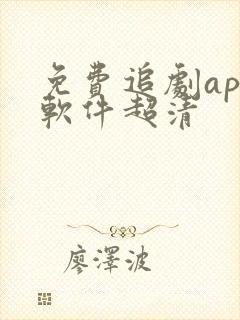 免費追劇ap
軟件超清
廖澤波